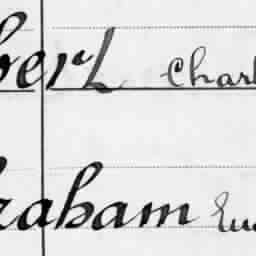 bert Charl
raham Eu